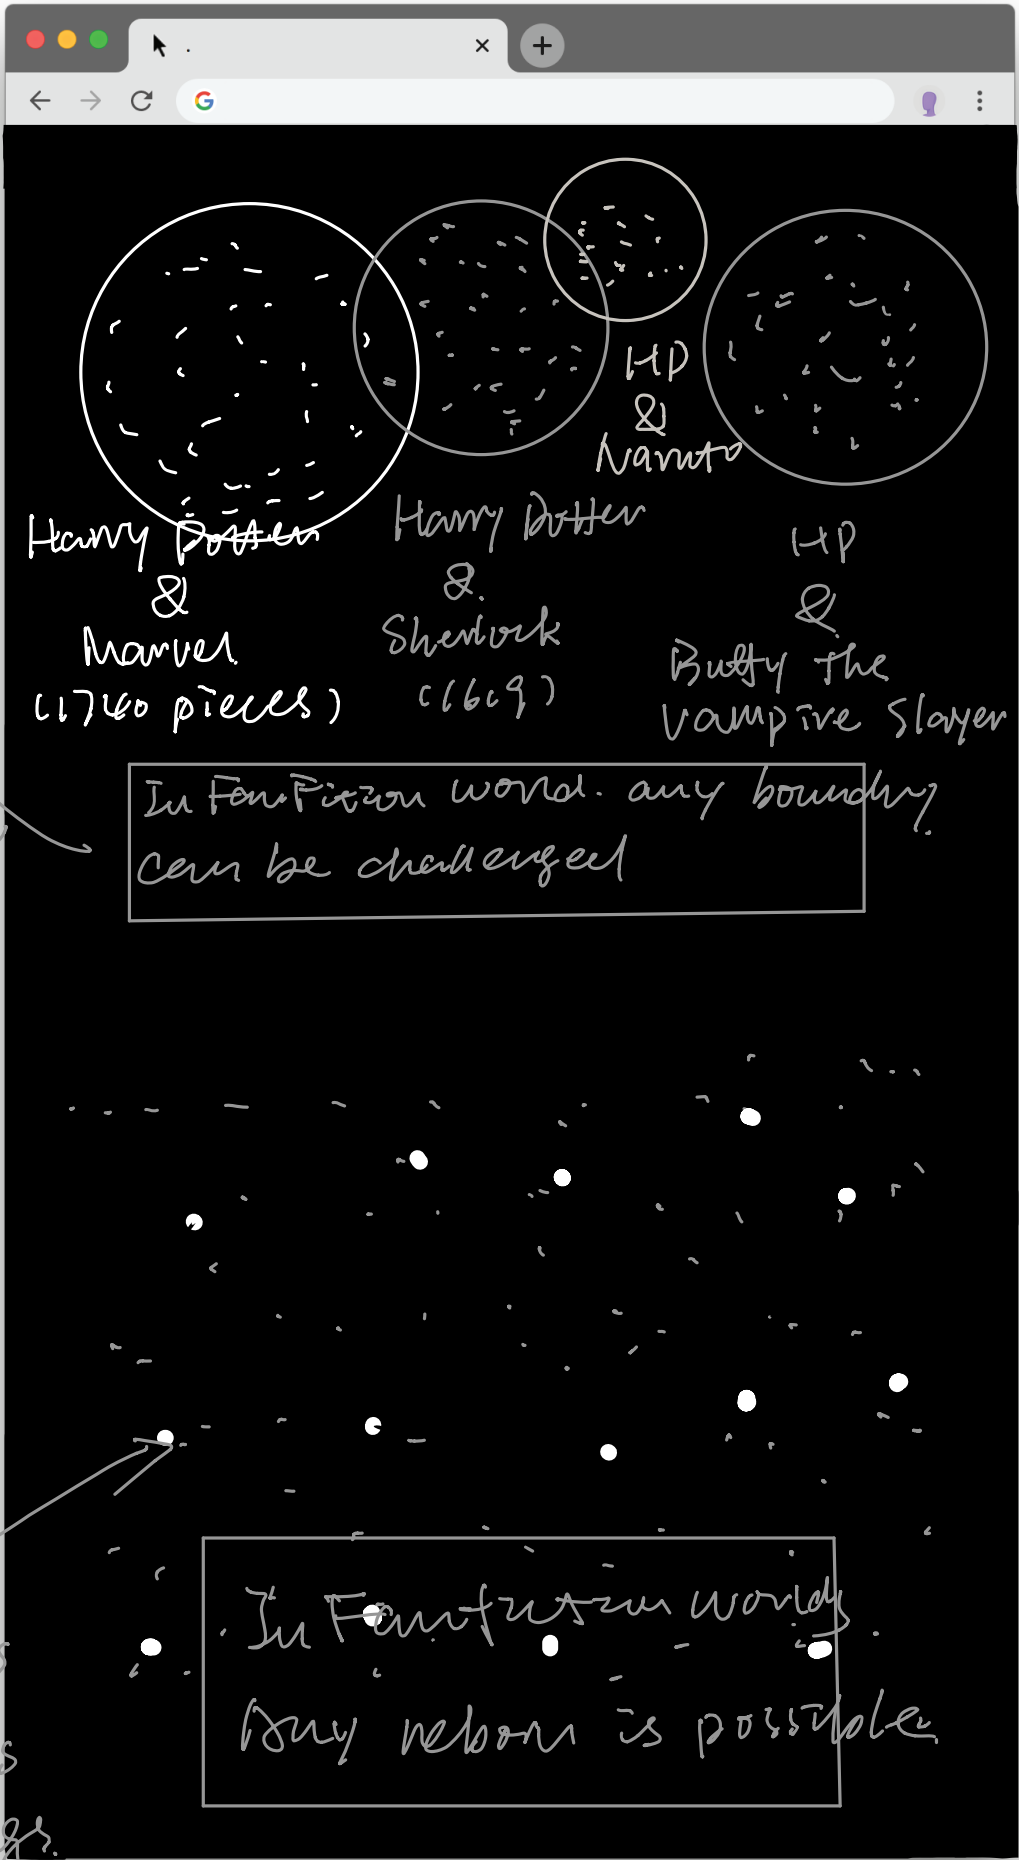 HP
&
Naruto
Harry Potter
&
Marvel
(1740 pieces)
Harry Potter
&
Sherlock
(1619)
HP
&
Buffy the
Vampire Slayer
In FanFiction world. any boundry
can be challenged
In Fanfiction world,
Any reborn is possible